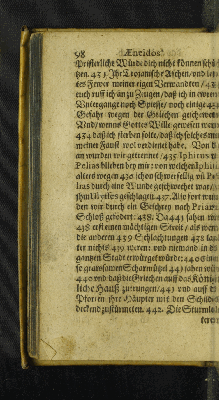 98 Æneidos
Priesterliche Winde dich nicht können schü-
tzen. 431 Ihr Trojanische Aschen/ und letz-
tes Fewer meiner eigen Verwandten/ 432
euch ruff ich an zu Zeugen/ daß ich in ewrem
Untergange noch Spiesse/ noch einige 433
Gefahr wegen der Griechen gewichen.
Und/ wenns Gottes Wille gewesen were/
434 daß ich sterben solte/ daß ich solches mit
meiner Faust wol verdienet habe. Von dan-
an wurden wir getrennet/ 435 Iphitus
Pelias blieben bey mir: von welchen Iphitus
alters wegen 436 schon schwer fellig un Pe-
lias durch eine Wunde geschwechet war/
ihm Ulysses geschlagen 437. Also fort wurden
den wir durch ein Geschrey nach Priami
Schloß gefodert: 438. Da 441 sahen wir
438 erst einen mächtigen Streit/ als wenn
die anderen 439 Schlachtungen 438 laut-
ter nichts 439 weren: und niemand in der
gantzen Stadt erwürget würde: 440 einen
so grawsamen Scharmützel 441 sahen wir/
440 und daß die Griechen auff das König-
liche Hauß zurungen/ 441 und auff die
Pforten ihre Häupter mit den Schilden
deckend zustürmeten. 442. Die Sturmlei-
tern